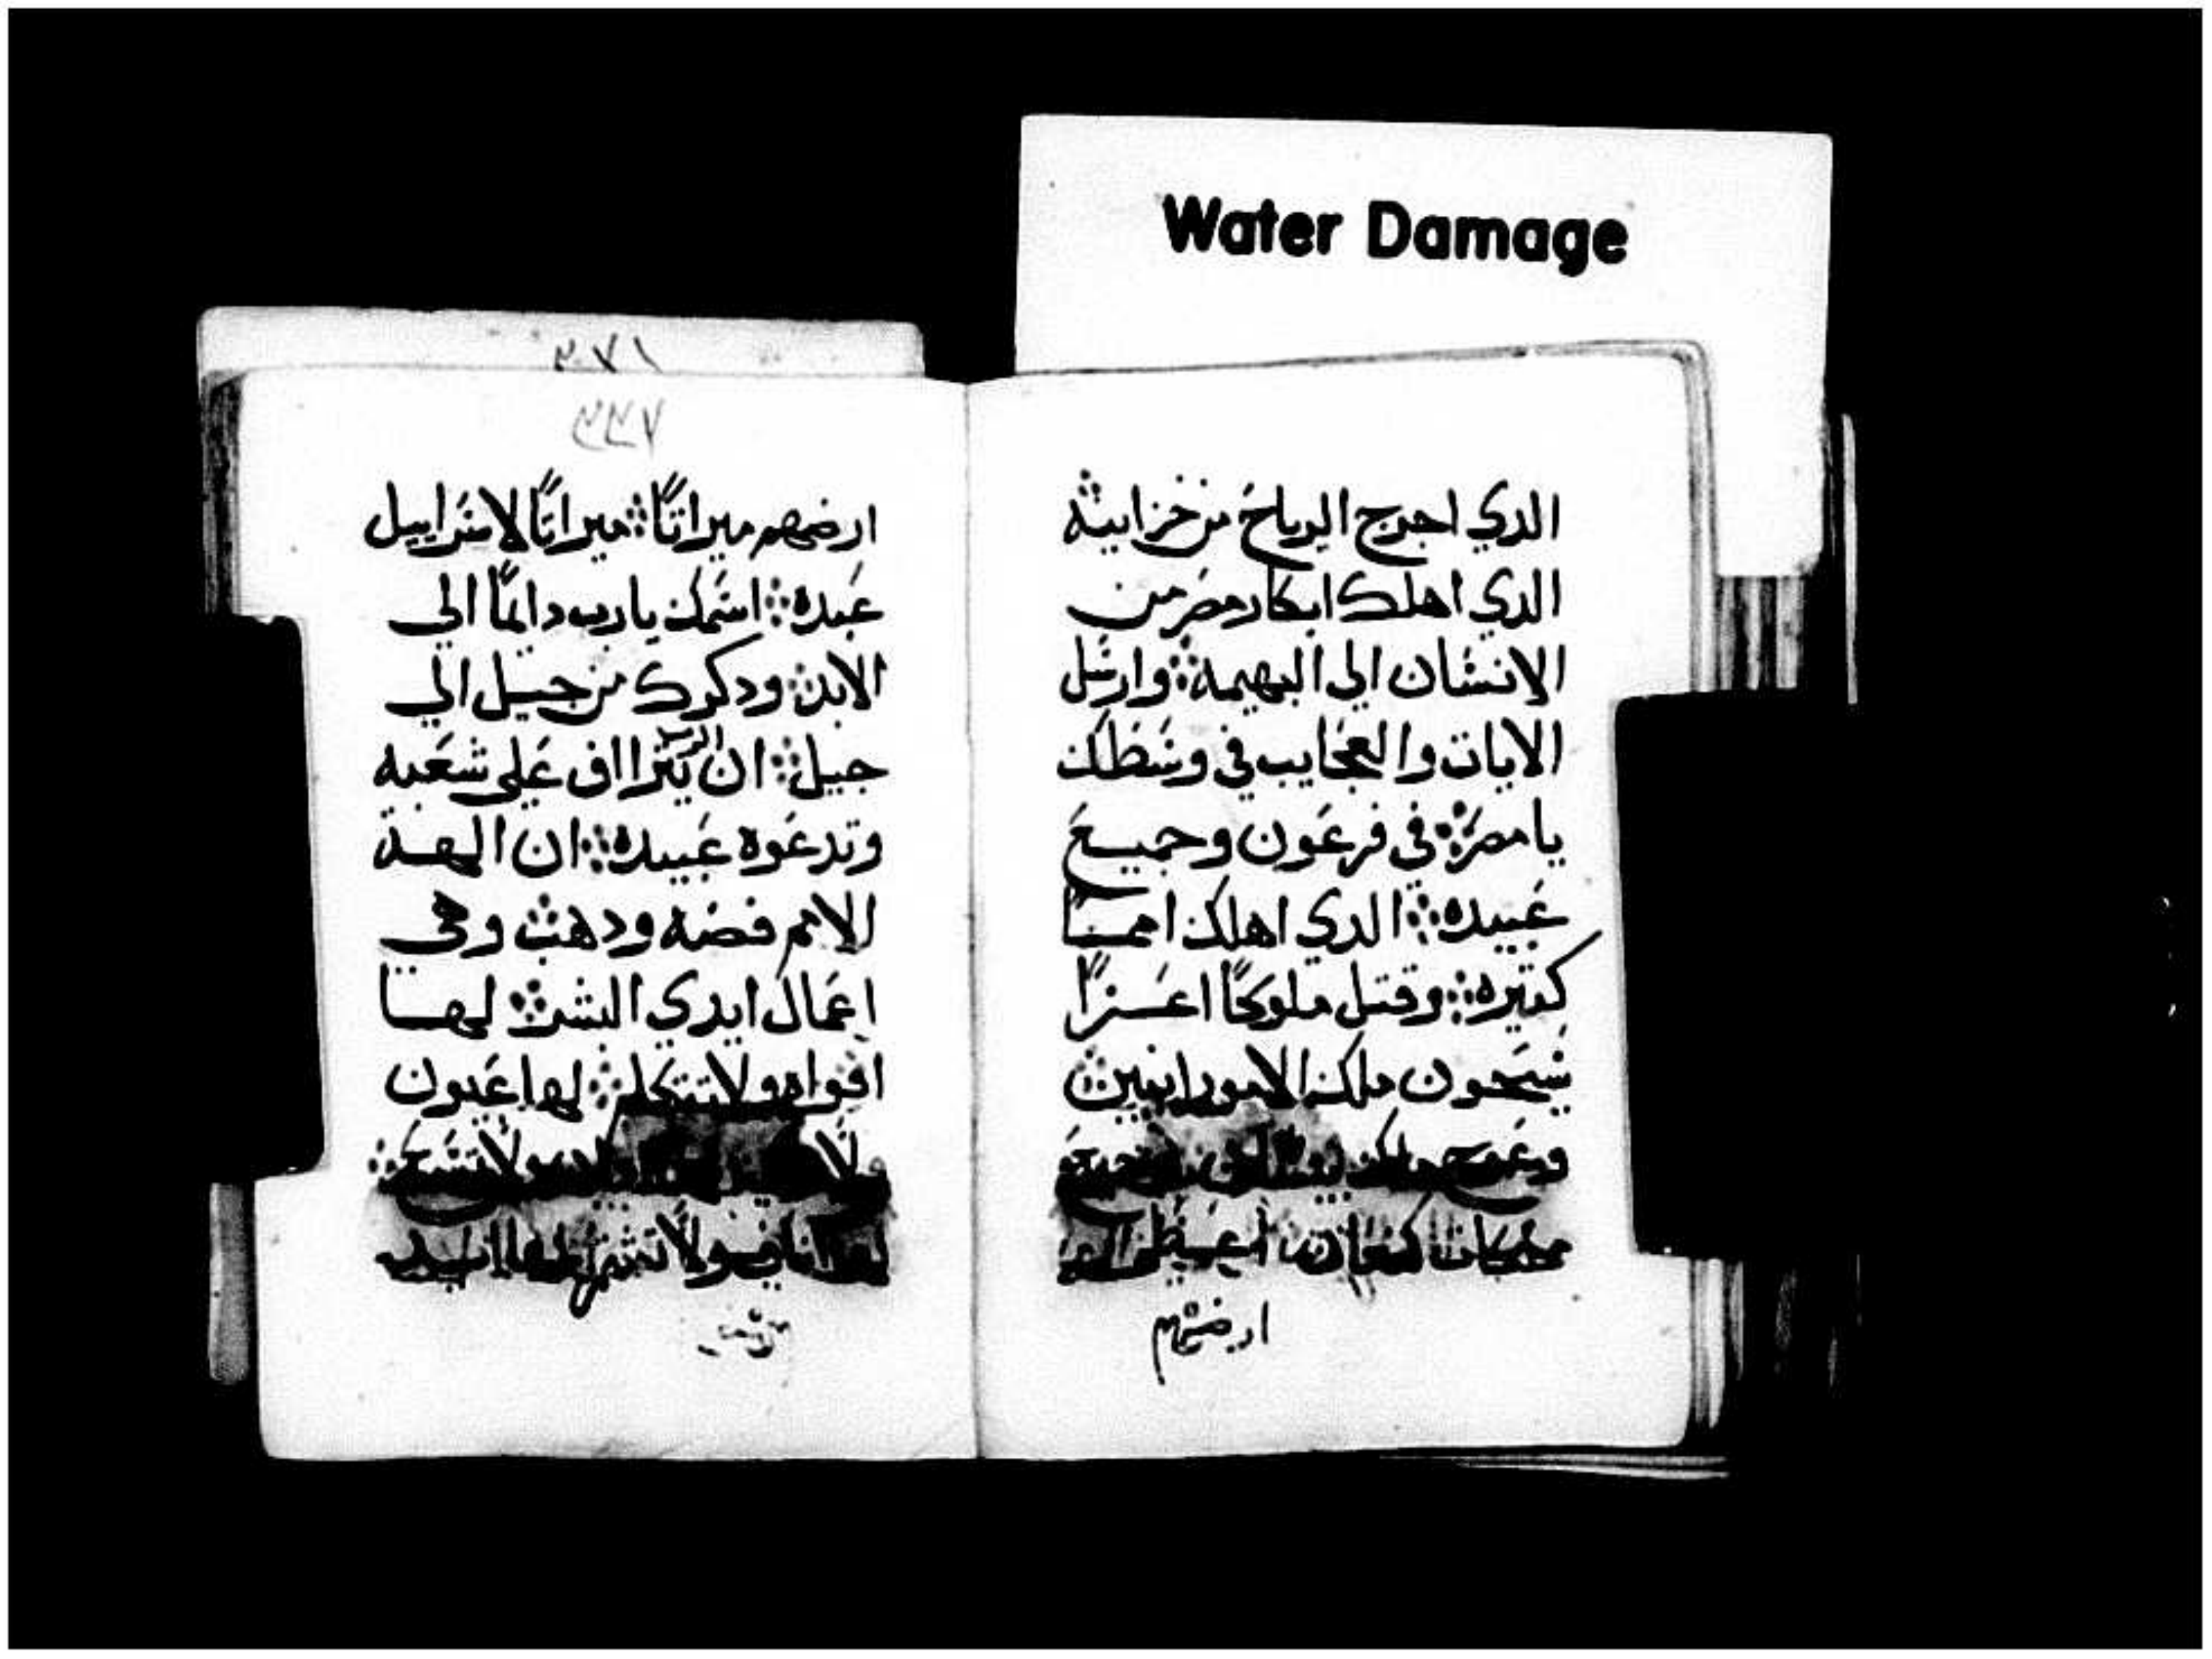 Water Damage
الدي اخرج الرياح من خزاينه
الدي اهلك ابكار مصر من
الانسان الي البهيمة ∴ وارسل
الايات والعجايب في وسطك
يا مصر ∴ في فرعون وجميع
عبيده ∴ الدي اهلك امما
كتيره ∴ وقتل ملوكًا اعزا
سيحون ملك الامورانيين ∴
وعوج ملك
ارضهم
٣٧١
٣٣٧
ارضهم ميراتًا ∴ ميراتًا لاسراييل
عبده ∴ اسمك يا رب دايمًا الي
الابد ∴ ودكرك من جيل الي
جيل ∴ ان الرب يتراف علي شعبه
وتدعوه عبيده ∴ ان الهة
الامم فضه ودهب وهي
اعمال ايدي البشر ∴ لها
افواه ولا تتكلم ∴ لها عيون
ولا ولا تسمع ∴
ولا تشم